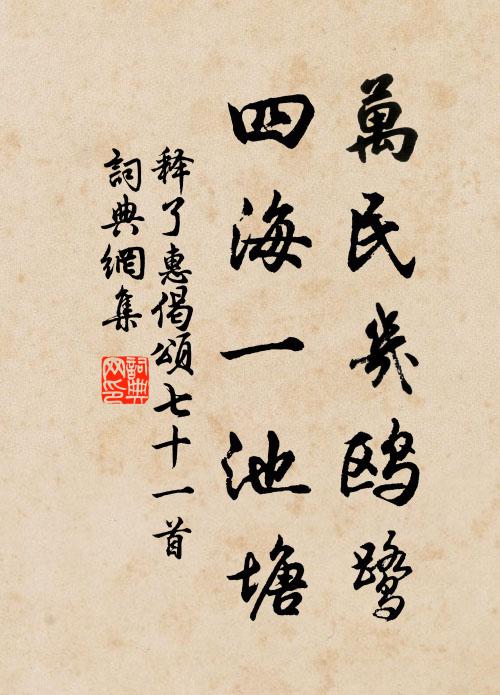 萬民幾鸥鷺
四海一池塘
释了惠偈頌七十一首
詞典網集
詞典网印